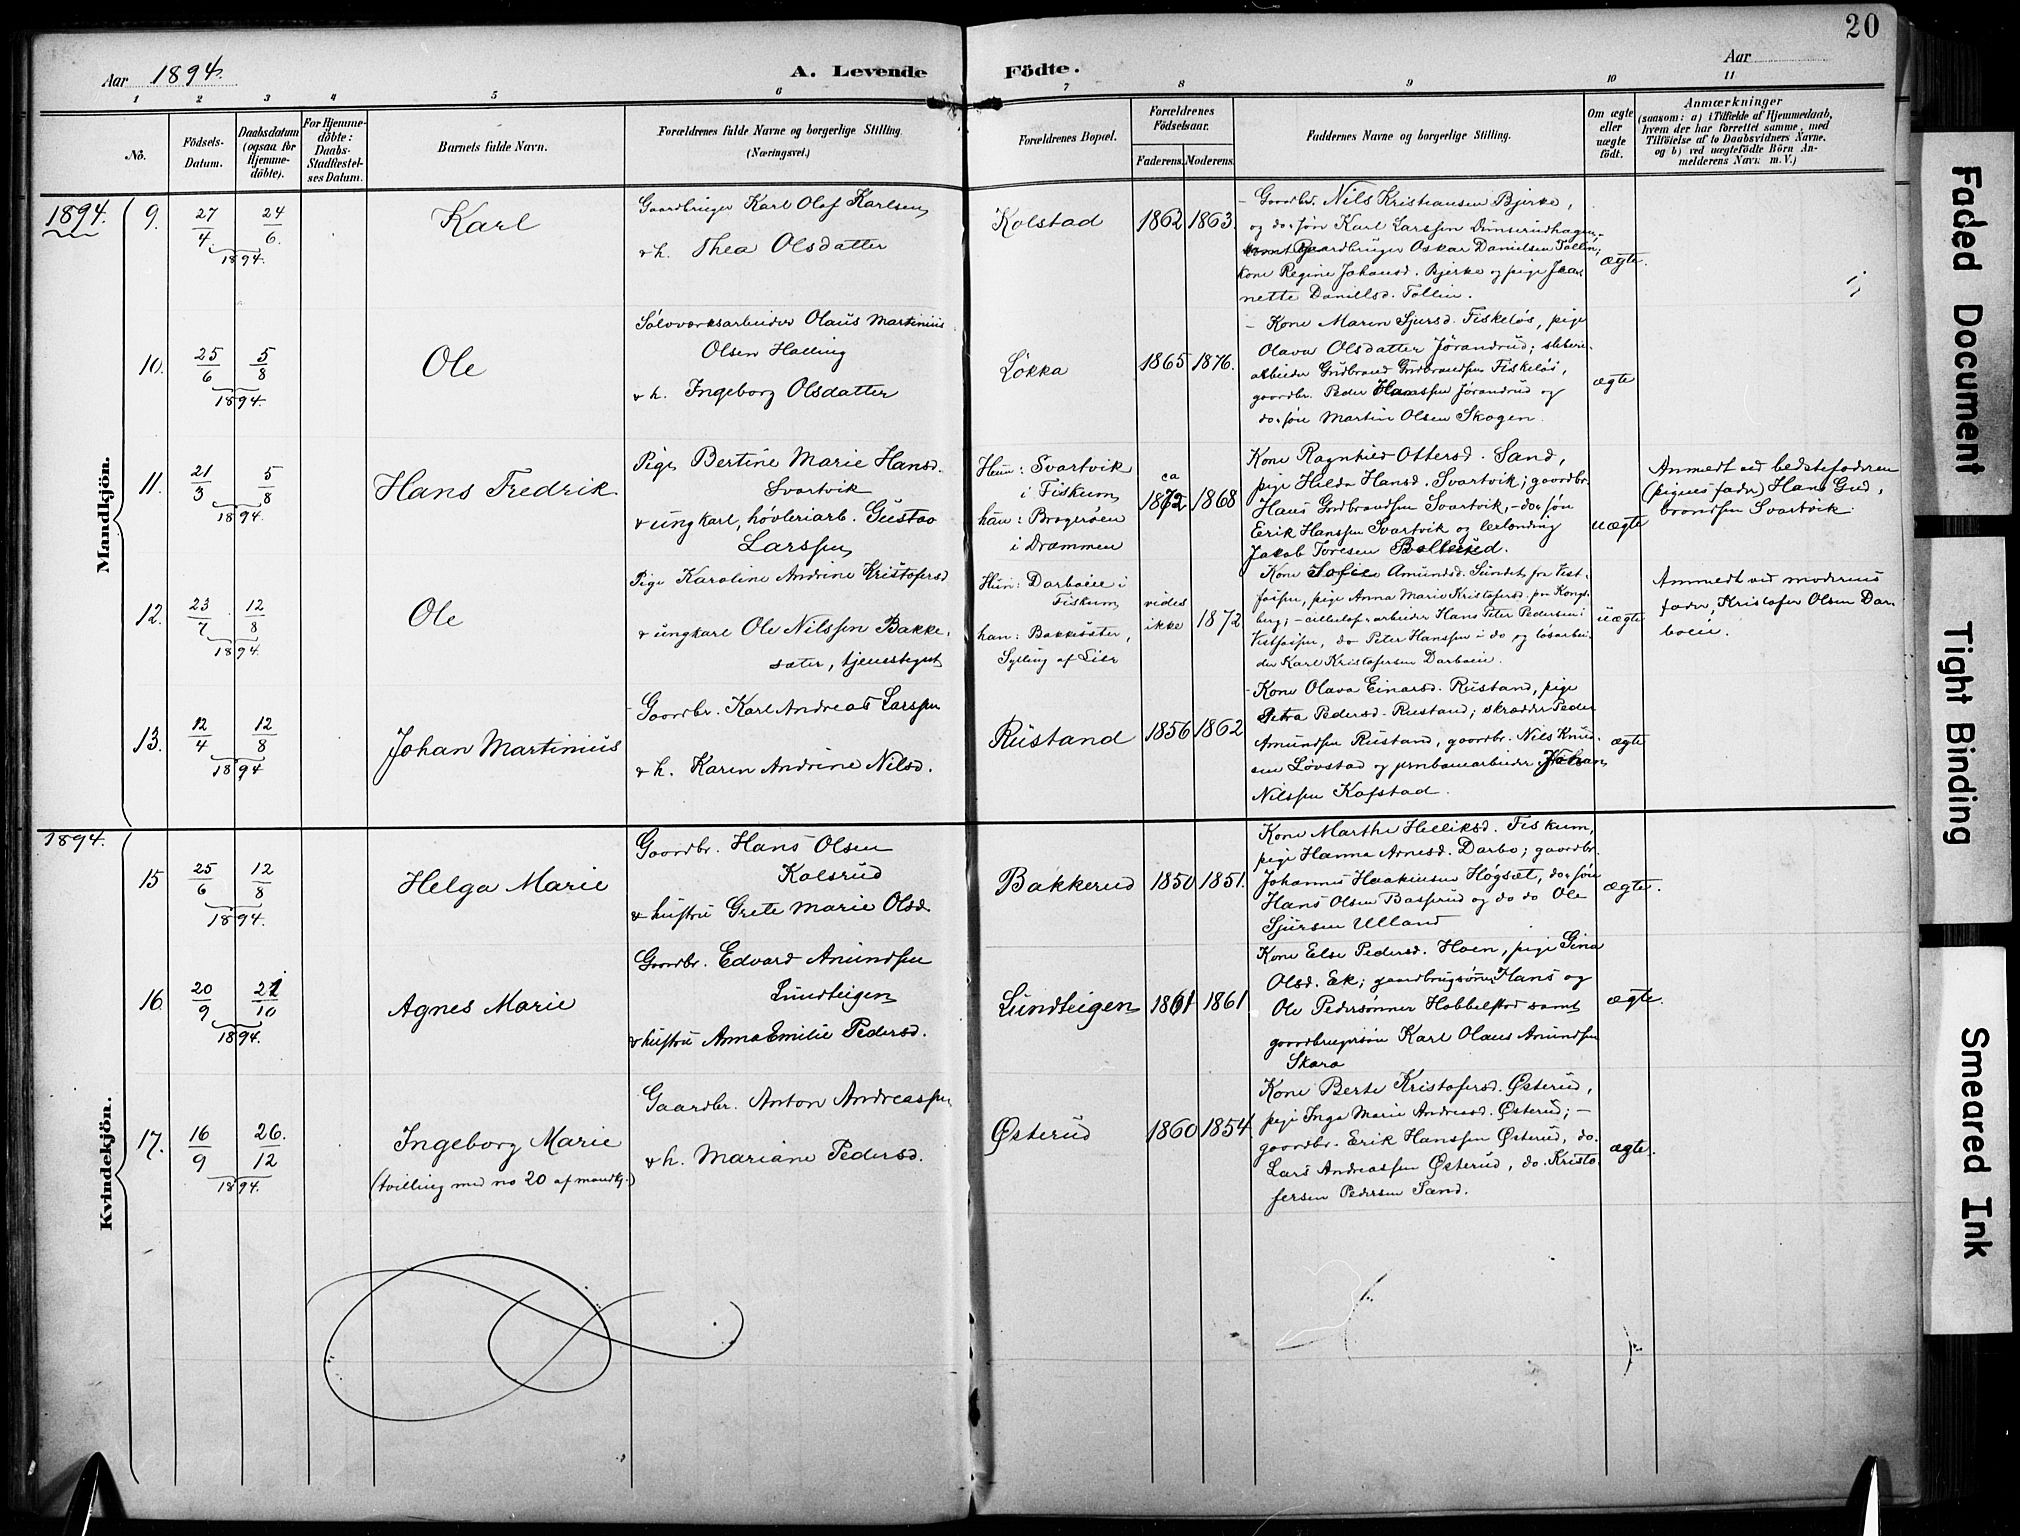 20
Aar 1894.
A. Levende Födte.
Aar
1 2 3 4 5 6 7 8 9 10 11
No.
Födsels-Datum.
Daabsdatum (ogsaa for Hjemme-döbte).
For Hjemme-döbte: Daabs-Stadfestel-ses Datum.
Barnets fulde Navn.
Forældrenes fulde Navne og borgerlige Stilling.
(Næringsvei.)
Forældrenes Bopæl.
Forældrenes Födselsaar.
Faderens. Moderens.
Faddernes Navne og borgerlige Stilling.
Om ægte eller uægte födt.
Anmærkninger
(saasom: a) i Tilfælde af Hjemmedaab, hvem der har forrettet samme, med Tilföielse af to Daabsvidners Navne. og b) ved uægtefödte Börn Anmelderens Navn m. V.)
Mandkjön.
1894. 9. 27/4 24/6 1894.
Karl
Gaardbruger Karl Olaf Karlsen
& h. Thea Olsdatter
Kolstad
1862 1863.
- Gaardbr. Nils Kristiansen Bjerke,
og do. søn Karl Larssen
gaardbruger Oskar Danielsen Tollin;
kone Regine Johansd. Bjerke og pige Jea-
nette Daniilsd. Tollin.
ægte.
10. 25/6 5/8 1894.
Ole
Sølvværksarbeider Olaus Martinius
Olsen Halling
& h. Ingeborg Olsdatter
Løkka
1865 1876.
- Kone Maren Sjursd. Fiskeløs, pige
Olava Olsdatter Jørandrud; sliberi-
arbeider Gudbrand Gudbrandsen Fiskeløs,
gaardbr. Peder Hanssen Jørandrud og
do. søn Martin Olsen Skogen.
ægte
11. 21/3 5/8 1894.
Hans Fredrik
Pige Bertine Marie Hansd.
Svartvik
& ungkarl, høvleriarb. Gustav
Larssen
Hun: Svartvik
i Fiskum,
han: Bragerøen
i Drammen
ca
1872 1868
Kone Ragnhild Ottersd. Sand,
pige Hilda Hansd. Svartvik; gaardbr.
Hans Gudbrandsen Svartvik, - do. søn
Erik Hanssen Svartvik og lerlending
Jakob Toresen Bollerud.
uægte
Anmeldt ved bedstefaderen
(pigens fader) Hans Gud,
brandsen Svartvik.
12. 23/7 12/8 1894.
Ole
Pige Karoline Andrine Kristofersd.
& ungkarl Ole Nilssen Bakke-
sæter, tjenestegut
Hun: Darboeie i
Fiskum,
han: Bakkesæter,
Sylling af Lier
vides
ikke 1872
Kone Sofie Amundsd. Sundet fra Vest-
fossen, pige Anna Marie Kristofersd. paa Kongs-
berg; - cellulosearbeider Hans Peter Pedersen i
Vestfossen, do Peter Hanssen i do og løsarbei-
der Karl Kristofersen Darboeie.
uægte
Anmeldt ved moderens
fader, Kristofer Olsen Dar-
boeie.
13. 12/4 12/8 1894
Johan Martinius
Gaardbr. Karl Andreas Larssen
& h. Karen Andrine Nilsd.
Rustand
1856 1862
- Kone Olava Einarsd. Rustand, pige
Petra Pedersd. Rustand; skrædder Peder
Amundsen Rustand, gaardbr. Nils Knud-
sen Løvstad og jernbanearbeider Johan
Nilssen Kofstad.
ægte
Kvindekjön.
1894.
15 25/6 12/8 1894.
Helga Marie
Gaardbr. Hans Olsen
Kolsrud
& hustru Grete Marie Olsd.
Bakkerud
1850 1851.
Kone Marthe Helliksd. Fiskum,
pige Hanna Arnesd. Darbo; gaardbr.
Johannes Haakensen Høgsæt, do. søn
Hans Olsen Basserud og do do Ole
Sjursen Ulland
ægte.
16. 20/9 21/10 1894.
Agnes Marie
Gaardbr. Edvard Amundsen
Lundteigen
& hustru Anna Emilie Pedersd.
Lundteigen
1861 1861
Kone Else Pedersd. Hoen, pige Gina
Olsd. Ek; gaardbrugsønner Hans og
Ole Pedersønner Hobbelstad samt
gaardbrugersøn Karl Olaus Amundsen
Skara
ægte.
17. 16/9 26./12 1894.
Ingeborg Marie
(tvilling med no 20 af mandkj.)
Gaardbr. Anton Andreassen
& h. Mariane Pedersd.
Østerud
1860 1854
Kone Berte Kristofersd. Østerud,
pige Inga Marie Andreasd. Østerud; -
gaardbr. Erik Hanssen Østerud, do.
Lars Andreassen Østerud, do. Kristo-
fersen Pedersen Sand.
ægte.
Faded Document
Tight Binding
Smeared Ink